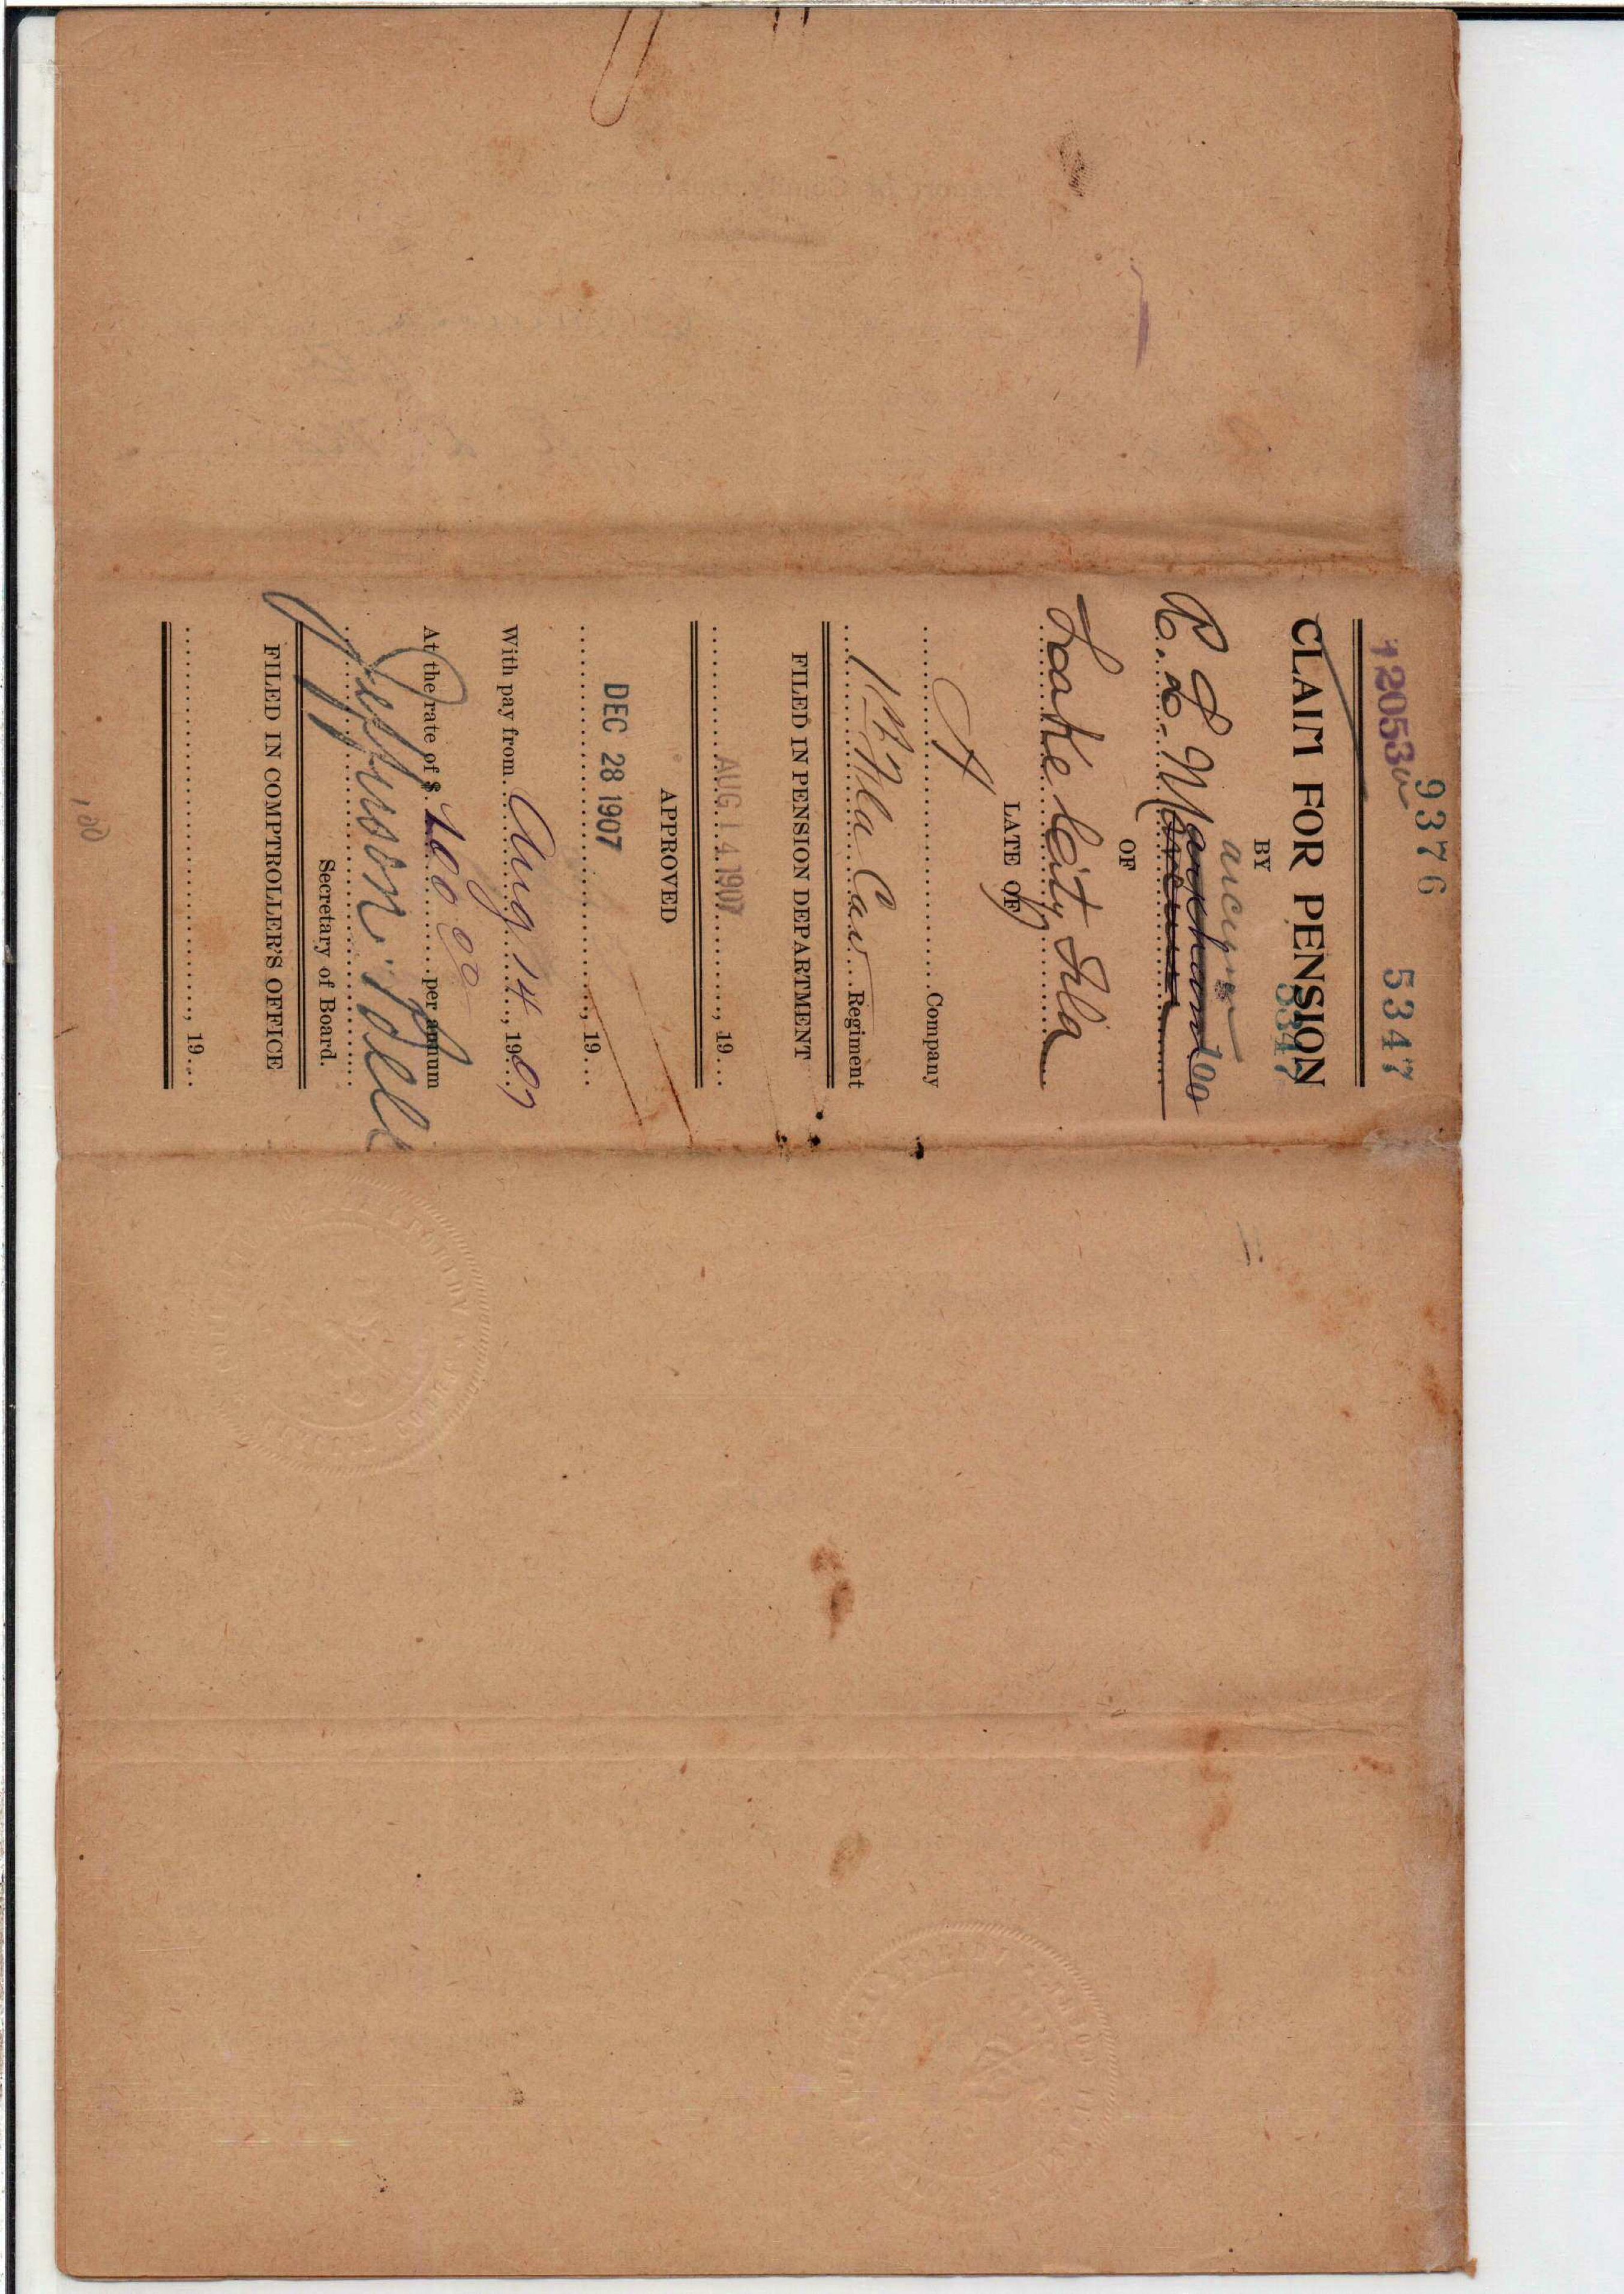 9376 5347
12053
CLAIM FOR PENSION
5347
BY
100
OF
Lake City Fla
LATE OF
A Company
1st Fla Cav Regiment
FILED IN PENSION DEPARTMENT
AUG 14 1907, 19...
APPROVED
DEC 28 1907, 19...
With pay from Aug 14, 1907
At the rate of $ 100 00 per annum
Secretary of Board.
FILED IN COMPTROLLER'S OFFICE
, 19...
100